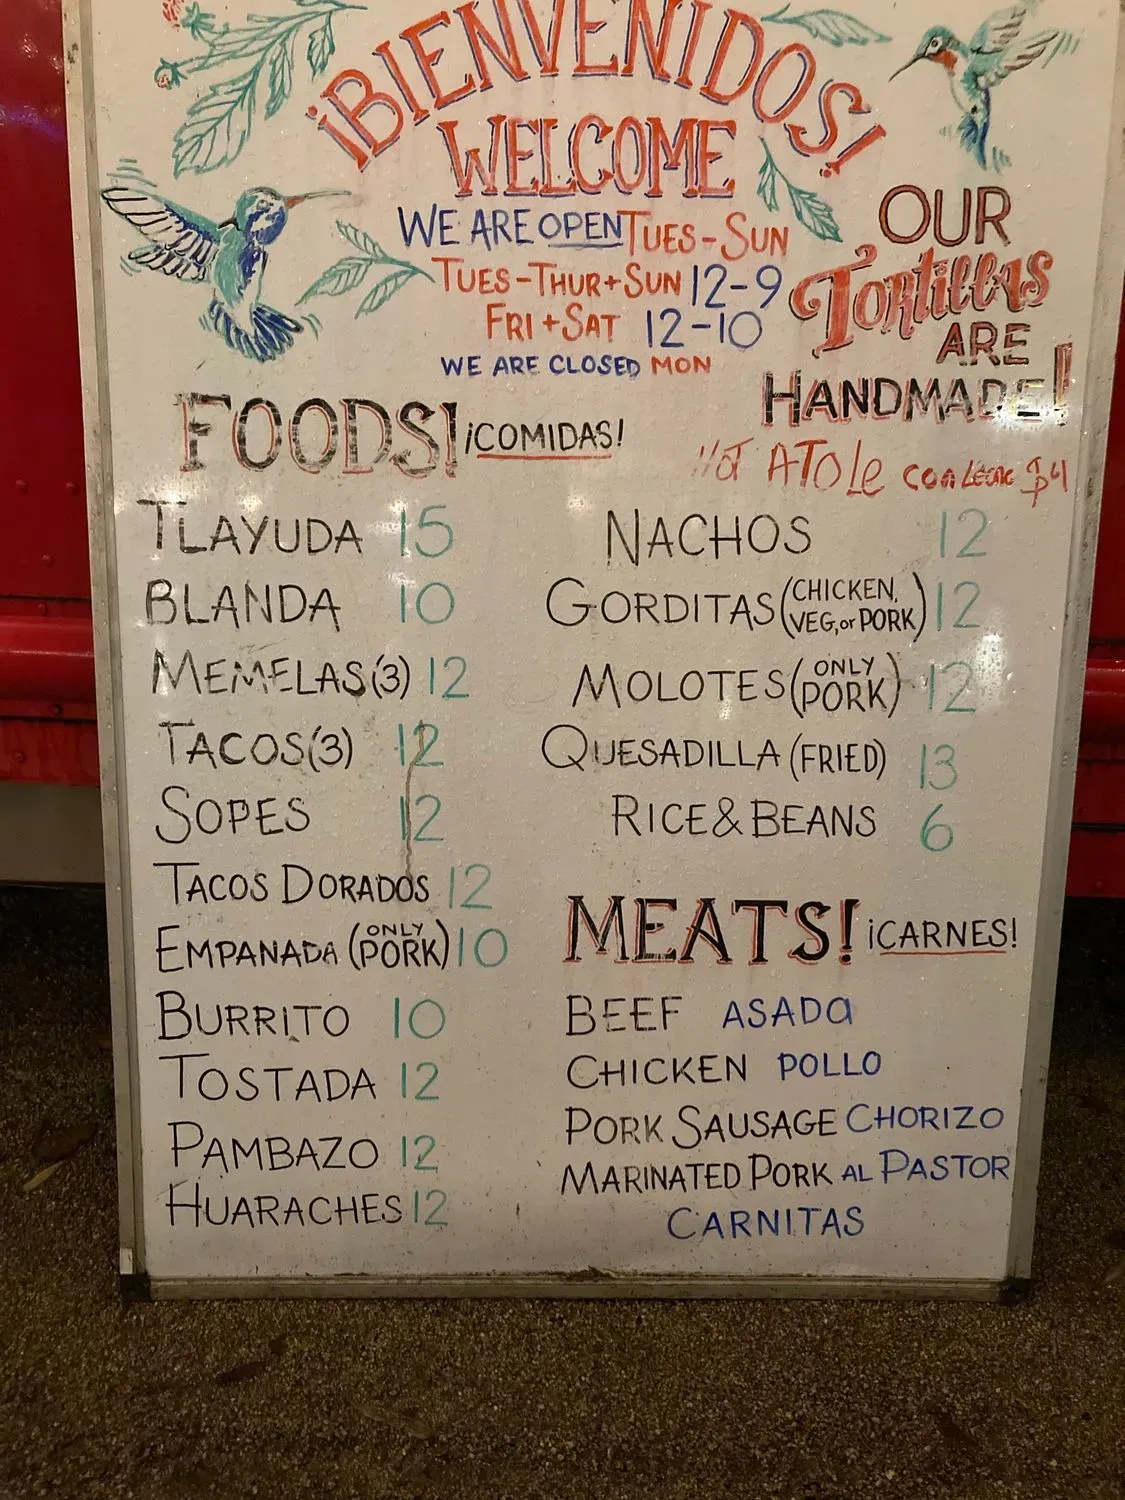 ¡BIENVENIDOS!
WELCOME
WE ARE OPEN TUES-SUN
TUES-THUR+SUN 12-9
FRI+SAT 12-10
WE ARE CLOSED MON
OUR
Tortillas
ARE
HANDMADE!
HOT ATOLe con Leche $4
FOODS! ¡COMIDAS!
TLAYUDA 15
BLANDA 10
MEMELAS(3) 12
TACOS(3) 12
SOPES 12
TACOS DORADOS 12
EMPANADA (ONLY PORK) 10
BURRITO 10
TOSTADA 12
PAMBAZO 12
HUARACHES 12
NACHOS 12
GORDITAS (CHICKEN, VEG, or PORK) 12
MOLOTES (ONLY PORK) 12
QUESADILLA (FRIED) 13
RICE & BEANS 6
MEATS! ¡CARNES!
BEEF ASADA
CHICKEN POLLO
PORK SAUSAGE CHORIZO
MARINATED PORK AL PASTOR
CARNITAS